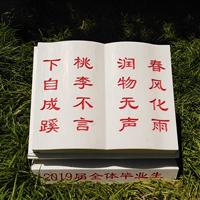 春风化雨
润物无声
桃李不言
下自成蹊
2019届全体毕业生